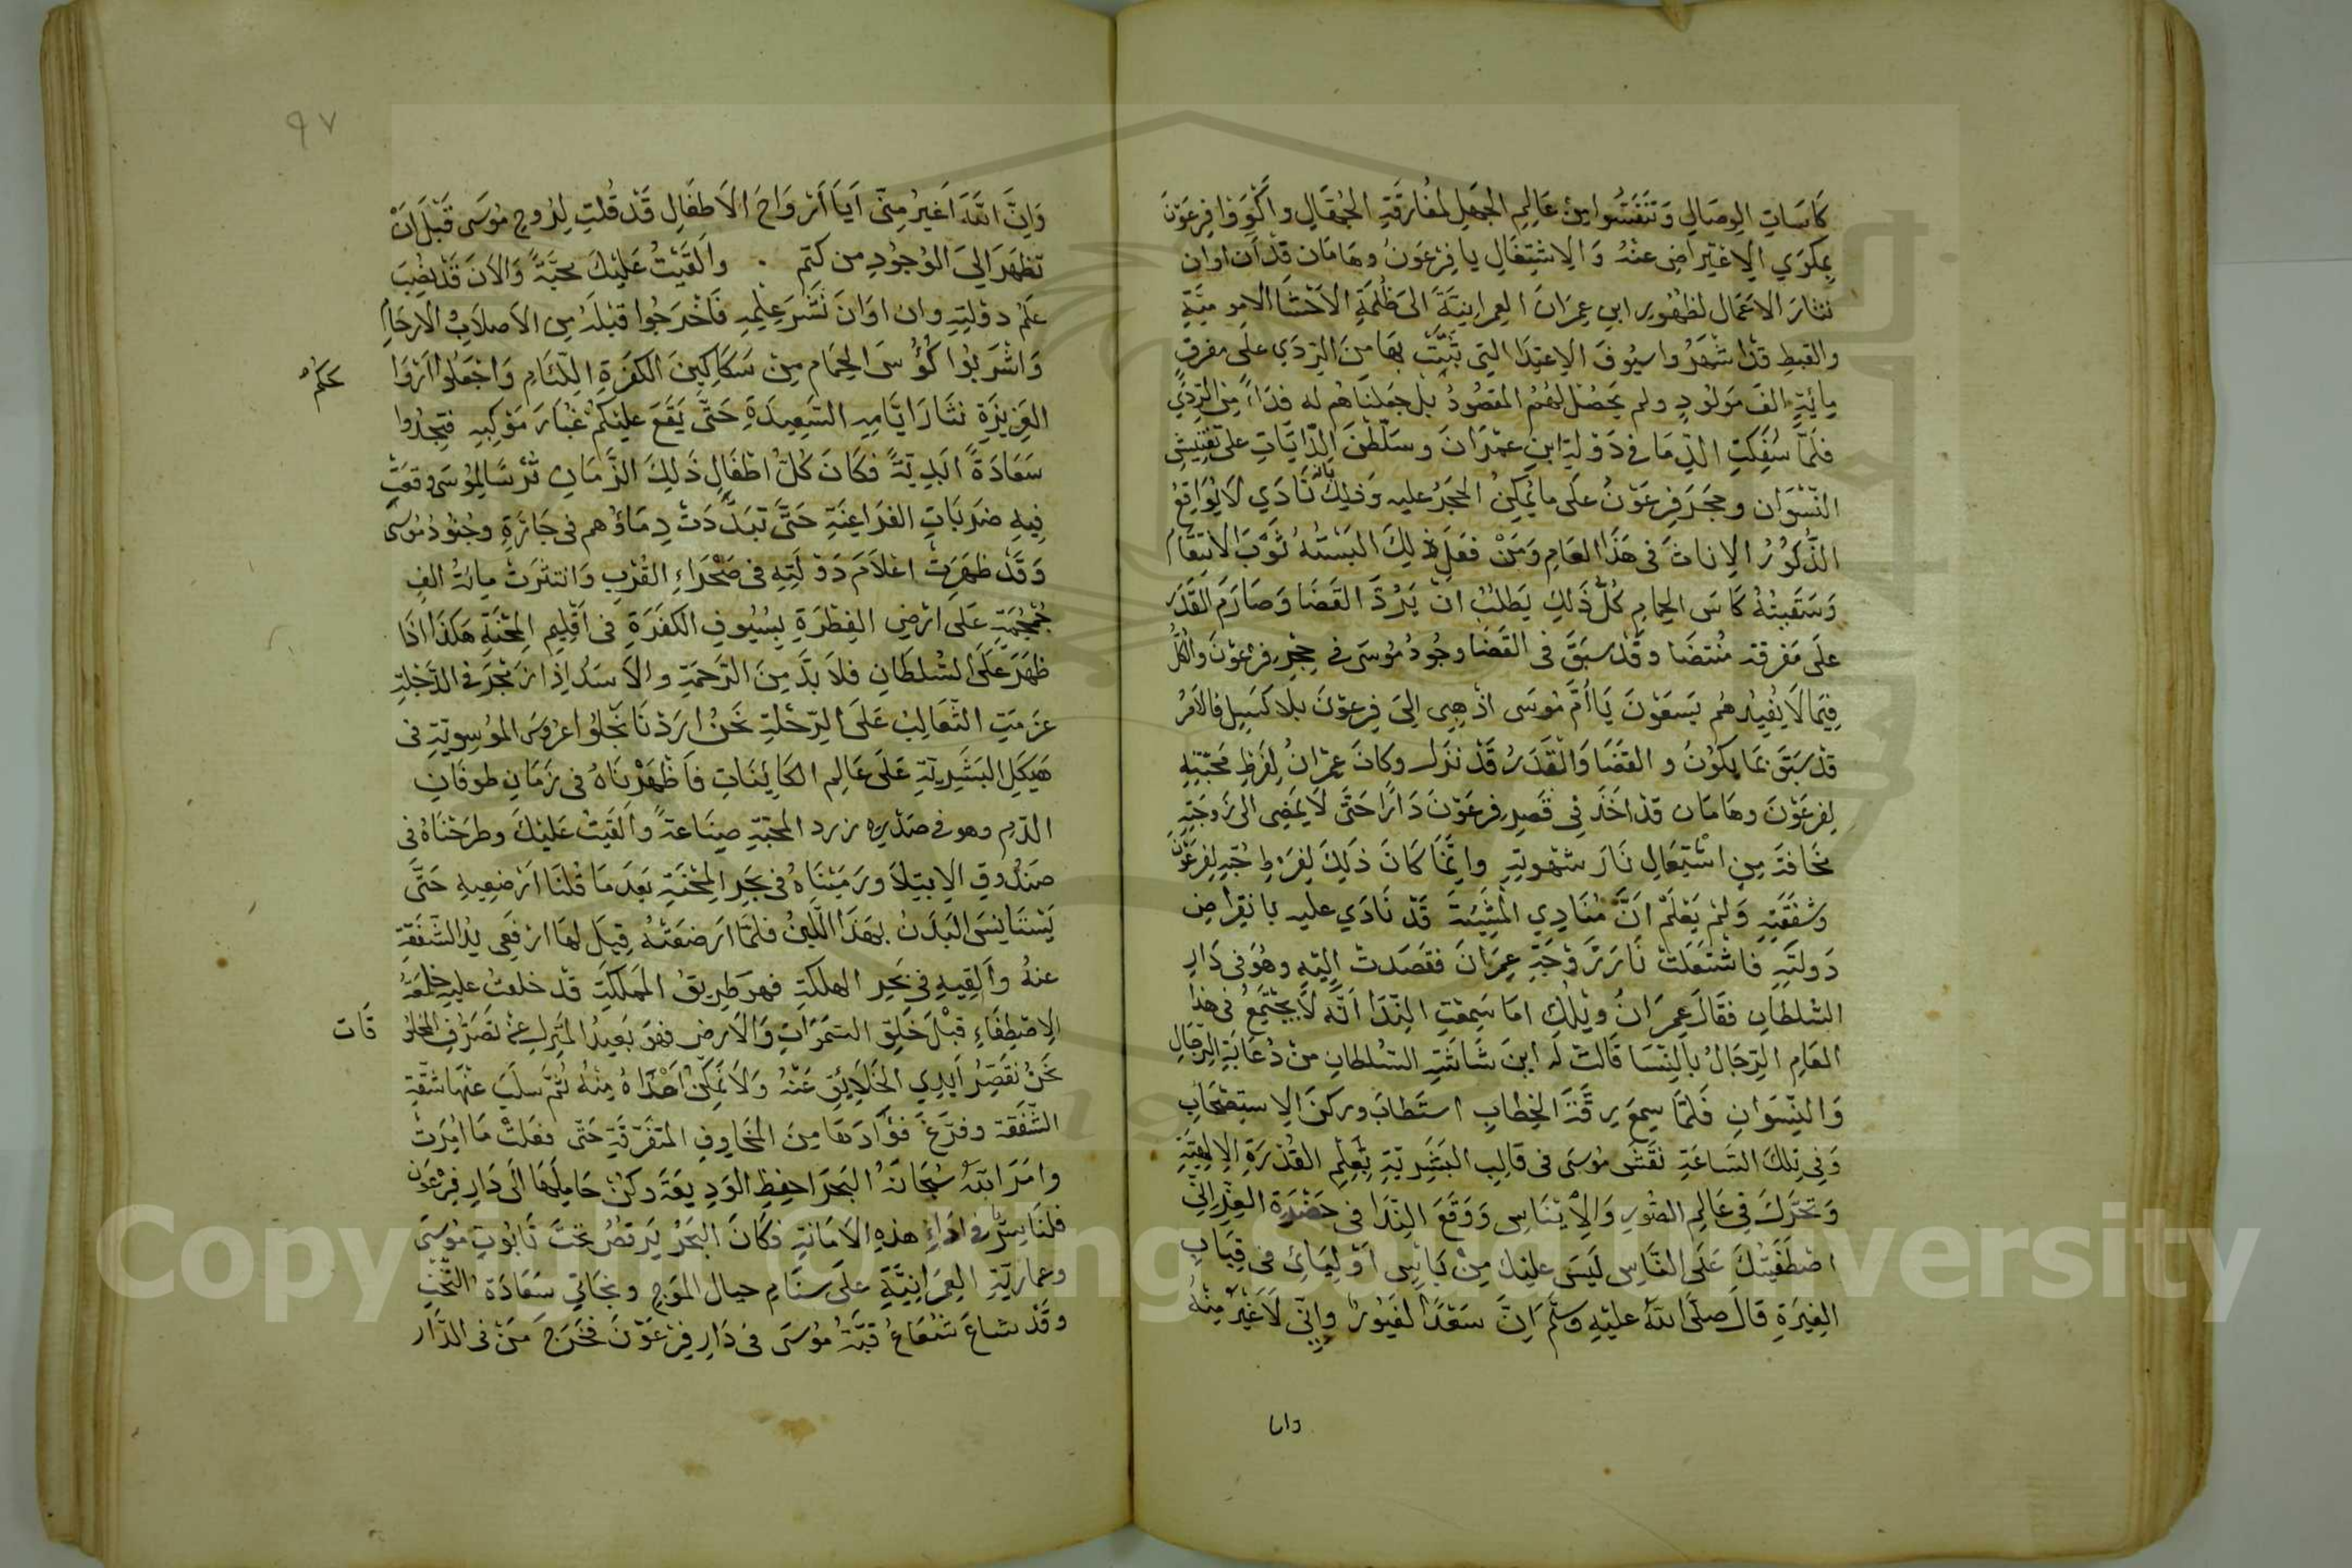 كَاسَاتِ الوِصَالِ وَتَنَفَّسُوا مِنْ عَالِمِ الجَهلِ لمُفَارَقَةِ الجُهّالِ و اكْوَوْا فِرعَوْنَ
بِمكوَي الاِعْتِراضِ عَنْهُ وَالاِشْتِغَالِ يا فِرْعَوْنُ وهَامَان قدْ آن اوان
نثار الاَعْمَال لظهُور ابنِ عِمرَانَ العِمرانِيَّةَ الى ظُلمَةِ الاَحْشَا
والقبطِ قدْ اشْهَرُوا سيُوفَ الاِعتِدَا التِي بهَا مِنَ الرّدَي علَى مفرقِ
مِايَةِ الفِ مَولُودٍ ولم يَحصُل لهُمُ المَقصُودُ بل جَعلنَاهُم له فدَاءً مِنَ الرّدَي
فلمّا سُفِكَتِ الدِّمَا في دَوْلةِ ابنِ عمْرَانَ وسَلّطْنَ الدّايَاتِ على تَفتِيشِ
النّسْوَان وحجَرَ فِرعَوْنُ علَى ما يُمكِنُ الحَجَرُ عليه وَذلِكَ بانْ نَادَي لاَ يُوَاقِعُ
الذُّكُورُ الاِناثَ فى هَذَا العَامِ وَمَنْ فعَل ذلِكَ البَسْتُهُ ثَوْبَ الانتقَام
وَسَقَيتُهُ كَاسَ الحِمامِ كلُّ ذَلِكَ يَطلبُ انْ يَرُدَّ القَضَا وَصَارَم القَدَر
علَى مَفرقه مُنتضَا وقدْ سبَقَ فى القَضَا وجُودُ مُوسَى في حِجرِ فرعَوْنَ والكلُّ
فِيمَا لاَ يُفِيدُهم يَسَعَوْنَ يَا أُمَّ مُوسَى اذْهبِى الِىَ فِرعَوْنَ بلا كسَل فالاَمرُ
قدْ سَبَقَ بمَا يكوُنُ و القضَا وَالْقَدَرُ قَدْ نزَل وكَانَ عِمْرَانُ لِفَرطِ مَحبّتِهِ
لِفرعَوْنَ وهَامَان قدْ اخَذَ فِى قَصرِ فرعَوْنَ دَارًا حَتَّى لاَ يَمضِى الى زَوجَتِهِ
مخَافَةَ مِن اشْتِعَالِ نَارَ شهْوتِهِ وانّمَا كَانَ ذلِكَ لفَرطِ حُبِّهِ لِفرعَوْنَ
وشَفَقتِهِ وَلمْ يَعْلمْ اَنَّ مُنَادِي المَشِيَّةَ قَدْ نَادَي عليه بانقِراضِ
دَولَتِهِ فاشتَعَلَتْ نَار زَوْجَةِ عِمرَانَ فقَصَدَتْ اِليْهِ وهُوَ فى دَارِ
السّلطانِ فقالَ عِمرَانُ ويْلُكِ امَا سَمِعْتِ النِدَا اَنّه لاَ يجْتَمِعُ فى هذَا
العَامِ الرّجَالُ بالنّسَا قالتْ لَه ابنَ شَاشَتِ السّلطانِ منْ دُعَابَةِ الرّجَالِ
وَالنّسَوانِ فَلمّا سمِعَ رِقّةَ الخِطابِ استَطابَ وركنَ الاِستِصْحَابِ
وَفِى تِلكَ السّاعَةِ نقَشَ مُوسَى فى قالِبِ البَشَرِيّةِ بقَلمِ القُدْرَةِ الاِلهيّةِ
وَتحَرَّكَ فِى عَالِمِ الصُّورِ وَالاِينَاسِ وَوَقَعَ النِدَا فى حَضْرَةِ العِزّ اِنّى
اصْطَفَيتُكَ عَلَى النَّاسِ لَيسَ عليْكَ مِنْ بَاسٍ اَوْلِيَائى فى قِبَابِ
الغِيرَةِ قالَ صلّى اللهُ عليْهِ وسَلّمَ اِنّ سَعْدًا لغَيُورٌ وانّى لَاَغْيَرُ مِنْهُ
وان
٩٧
وَاِنَّ اللَّهَ اَغيرُ مِنّى اَيَا اَرْوَاحَ الاَطفَالِ قَدْ قُلتِ لِرُوحِ مُوسَى قَبْلَ اَنْ
تظهَرَ الىَ الوُجُودِ من كتَمٍ . والقَيْتُ عَلَيْكَ محَبَّةً وَالاَنَ قَدْ نُصِبَ
علمُ دوْلَتِهِ وان اوَانَ نَشْرِ عِلمِهِ فَاخْرجُوا قبْلَهُ مِن الاَصلاَبِ الارحَامِ
وَاشْرَبُوا كُؤُسَ الحِمَام مِنْ سَكاكِينَ الكفَرَةِ اللئَام وَاجْعَلُوا ارْوَا
حَكمُ
العَزِيزَةِ نثَارَ ايّامِهِ السّعِيدَةِ حَتَّى يَقَعَ علَيْكمْ غُبَارَ مَوْكبِهِ فتَجِدُوا
سَعَادَةً ابَدِيَّةً فكَانَ كُلُّ اطْفَالِ ذَلِكَ الزَّمَانِ تُرْسًا لِمُوسَى وقعَتْ
فِيهِ ضرَبَاتِ الفرَاعِنَةِ حَتَّى تبَدَّدَتْ دِمَاؤُهم فى جَائزَةِ وجُنُودُ مُوسَى
وَقدْ ظهَرَتْ اعْلاَم دَوْلَتِهِ فى صَحْرَاءِ القُرْبِ وَانتثرَتْ مِائةُ الفِ
جُمْجُمَةٍ عَلَى ارْضِ الفِطرَةِ بِسُيُوفِ الكَفَرَةِ فى اقْلِيمِ المِحْنَةِ هَكَذَا اذَا
ظهَرَ عَلَى السُلطَانِ فلاَ بدَّ مِنَ الرَّحمَةِ والاسَدُ اِذا زَمْجَرَ فى الدَّجْلةِ
عزَمَتِ الثّعَالِبُ عَلَى الرّحْلةِ نَحْنُ ارَدْنَا نَجْلُوا عرُوسَ المُوسِويّةِ فى
هَيكلِ البَشَرِيّةِ عَلَى عَالِمِ الكَائِنَاتِ فاَظهَرْنَاهُ فى زَمَانِ طوفَانِ
الدّم وهو فى صَدْرِهِ زرد المحَبّةِ صِنَاعَةً وَالقَيْتُ عَلَيْكَ وطرَحْنَاهُ فى
صَنْدُوقِ الاِبتِلاَ ورَمَيْنَاهُ فى بَحرِ المِحْنَةِ بَعدَ مَا قُلنَا ارْضِعِيهِ حَتَّى
يَسْتَانِسَ البَدَنُ بهَذَا اللّبنُ فلمّا ارَضَعَتْهُ قِيلَ لهَا ارْفَعِى يدُ الشّفَقَةِ
عنهُ وَاَلقِيهِ فى بَحرِ الهلكَةِ فهوَ طرِيقُ المَملكَةِ قدْ خلعْتُ عليهِ خلعَةَ
الاِصْطِفَاءِ قبْلَ خَلقِ السّمَوَاتِ وَالاَرضِ فهوَ بَعِيدُ المَنزِلِ عنْ تصَرُّفِ المخلُو
قَات
نَحْنُ نقَصِّرُ اَيدِي الخَلاَيقِ عَنْهُ وَلاَ نُمَكّنُ اَحدًا مِنهُ ثمّ سلَبَ عنْهَا شفَقَة
الشّفَقةِ وفرّغَ فؤَادَهَا مِنَ المَخَاوِفِ المتَفَرّقَةِ حَتّى فعَلَتْ مَا امُرَتْ
وامَرَ اللّهُ سُبحَانَهُ البَحرَ احفِظِ الوَدِيعَةَ وكنْ حَامِلَهَا الَى دَارِ فِرْعَوْن
فلنَا سِرٌّ فى ادَاءِ هذِهِ الاَمَانَةِ فكَانَ البَحرُ يَرقُصُ تحْتَ تَابُوتِ مُوسَى
وعمارِيّةِ العِمرَانِيَّةِ علَى سنَامِ جبال المَوجِ ونجَاتِى سَعَادَة التّخْتِ
وقدْ شاعَ شعَاعُ قبّةُ مُوسَى فى دَارِ فِرْعَوْنَ فخَرَجَ مَنْ فى الدّار
Copyright © King Saud University